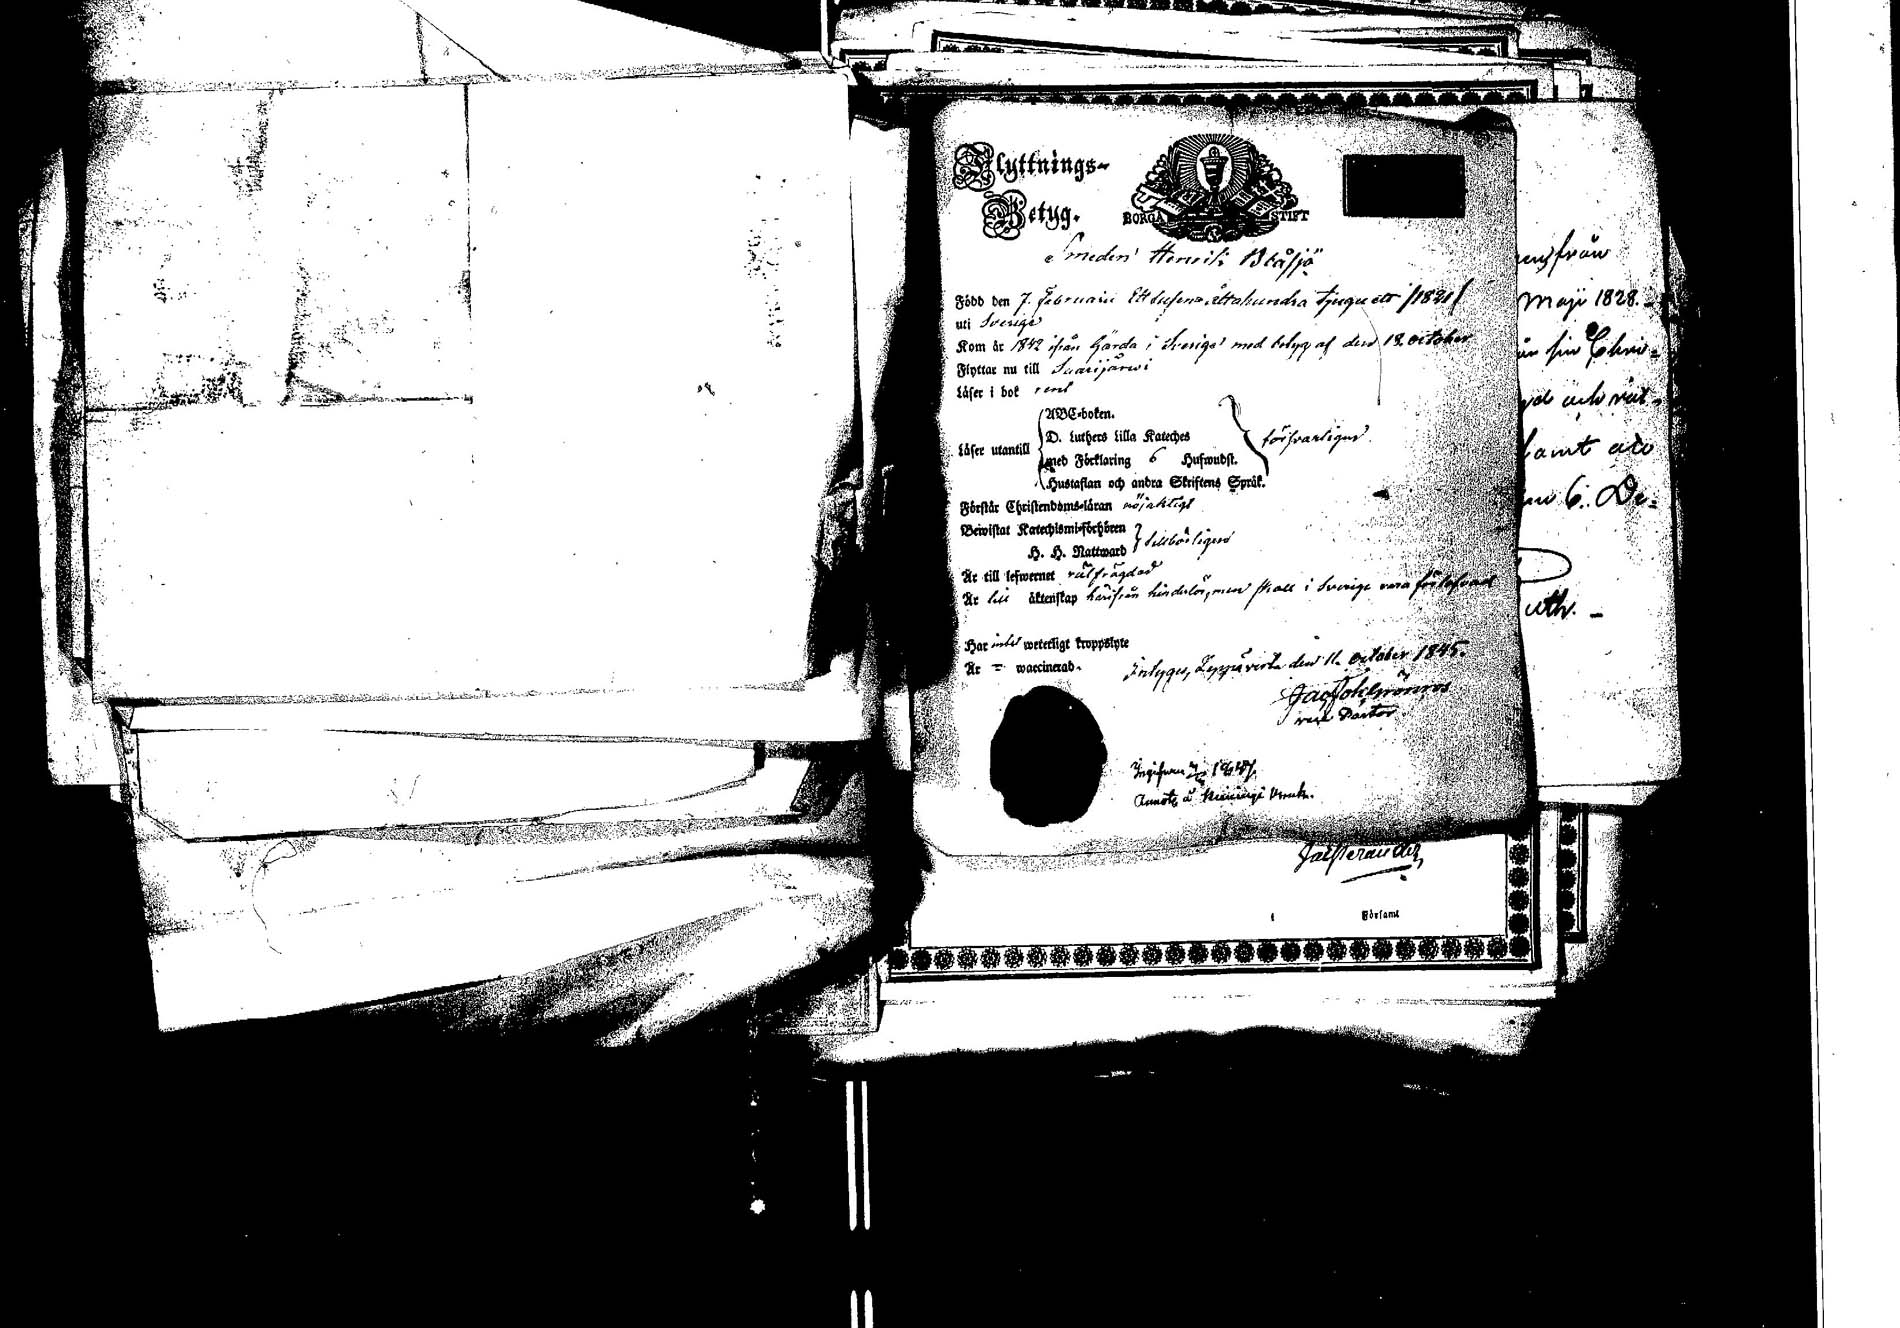 Flyttnings-
Betyg.
BORGÅ STIFT
Smeden Henrik Blåsjö
Född den 7. Februarii Ettusen åttahundra tjuguett /1821/
uti Sverige
Kom år 1842 ifrån Gärda i Sverige med betyg af den 18. October
Flyttar nu till Saarijärwi
Läser i bok rent
Läser utantill
ABC-boken.
D. Luthers Lilla Kateches
med Förklaring 6 Hufwudst.
Hustaflan och andra Skriftens Språk.
försvarligen
Förstår Christendoms-läran nöjaktigt
Bewistat Katechismi-förhören
H. H. Nattward
tillbörligen
Är till lefwernet välfrägdad
Är till äktenskap härifrån hinderlös, men skall i Sverige vara förlofvad
Har intet weterligt kroppslyte
Är = waccinerad.
Intygar, Leppävirta den 11. October 1845.
vice Pastor
Församl
ens från
Maji 1828.
än sin Chri-
samt att
en 6. De-